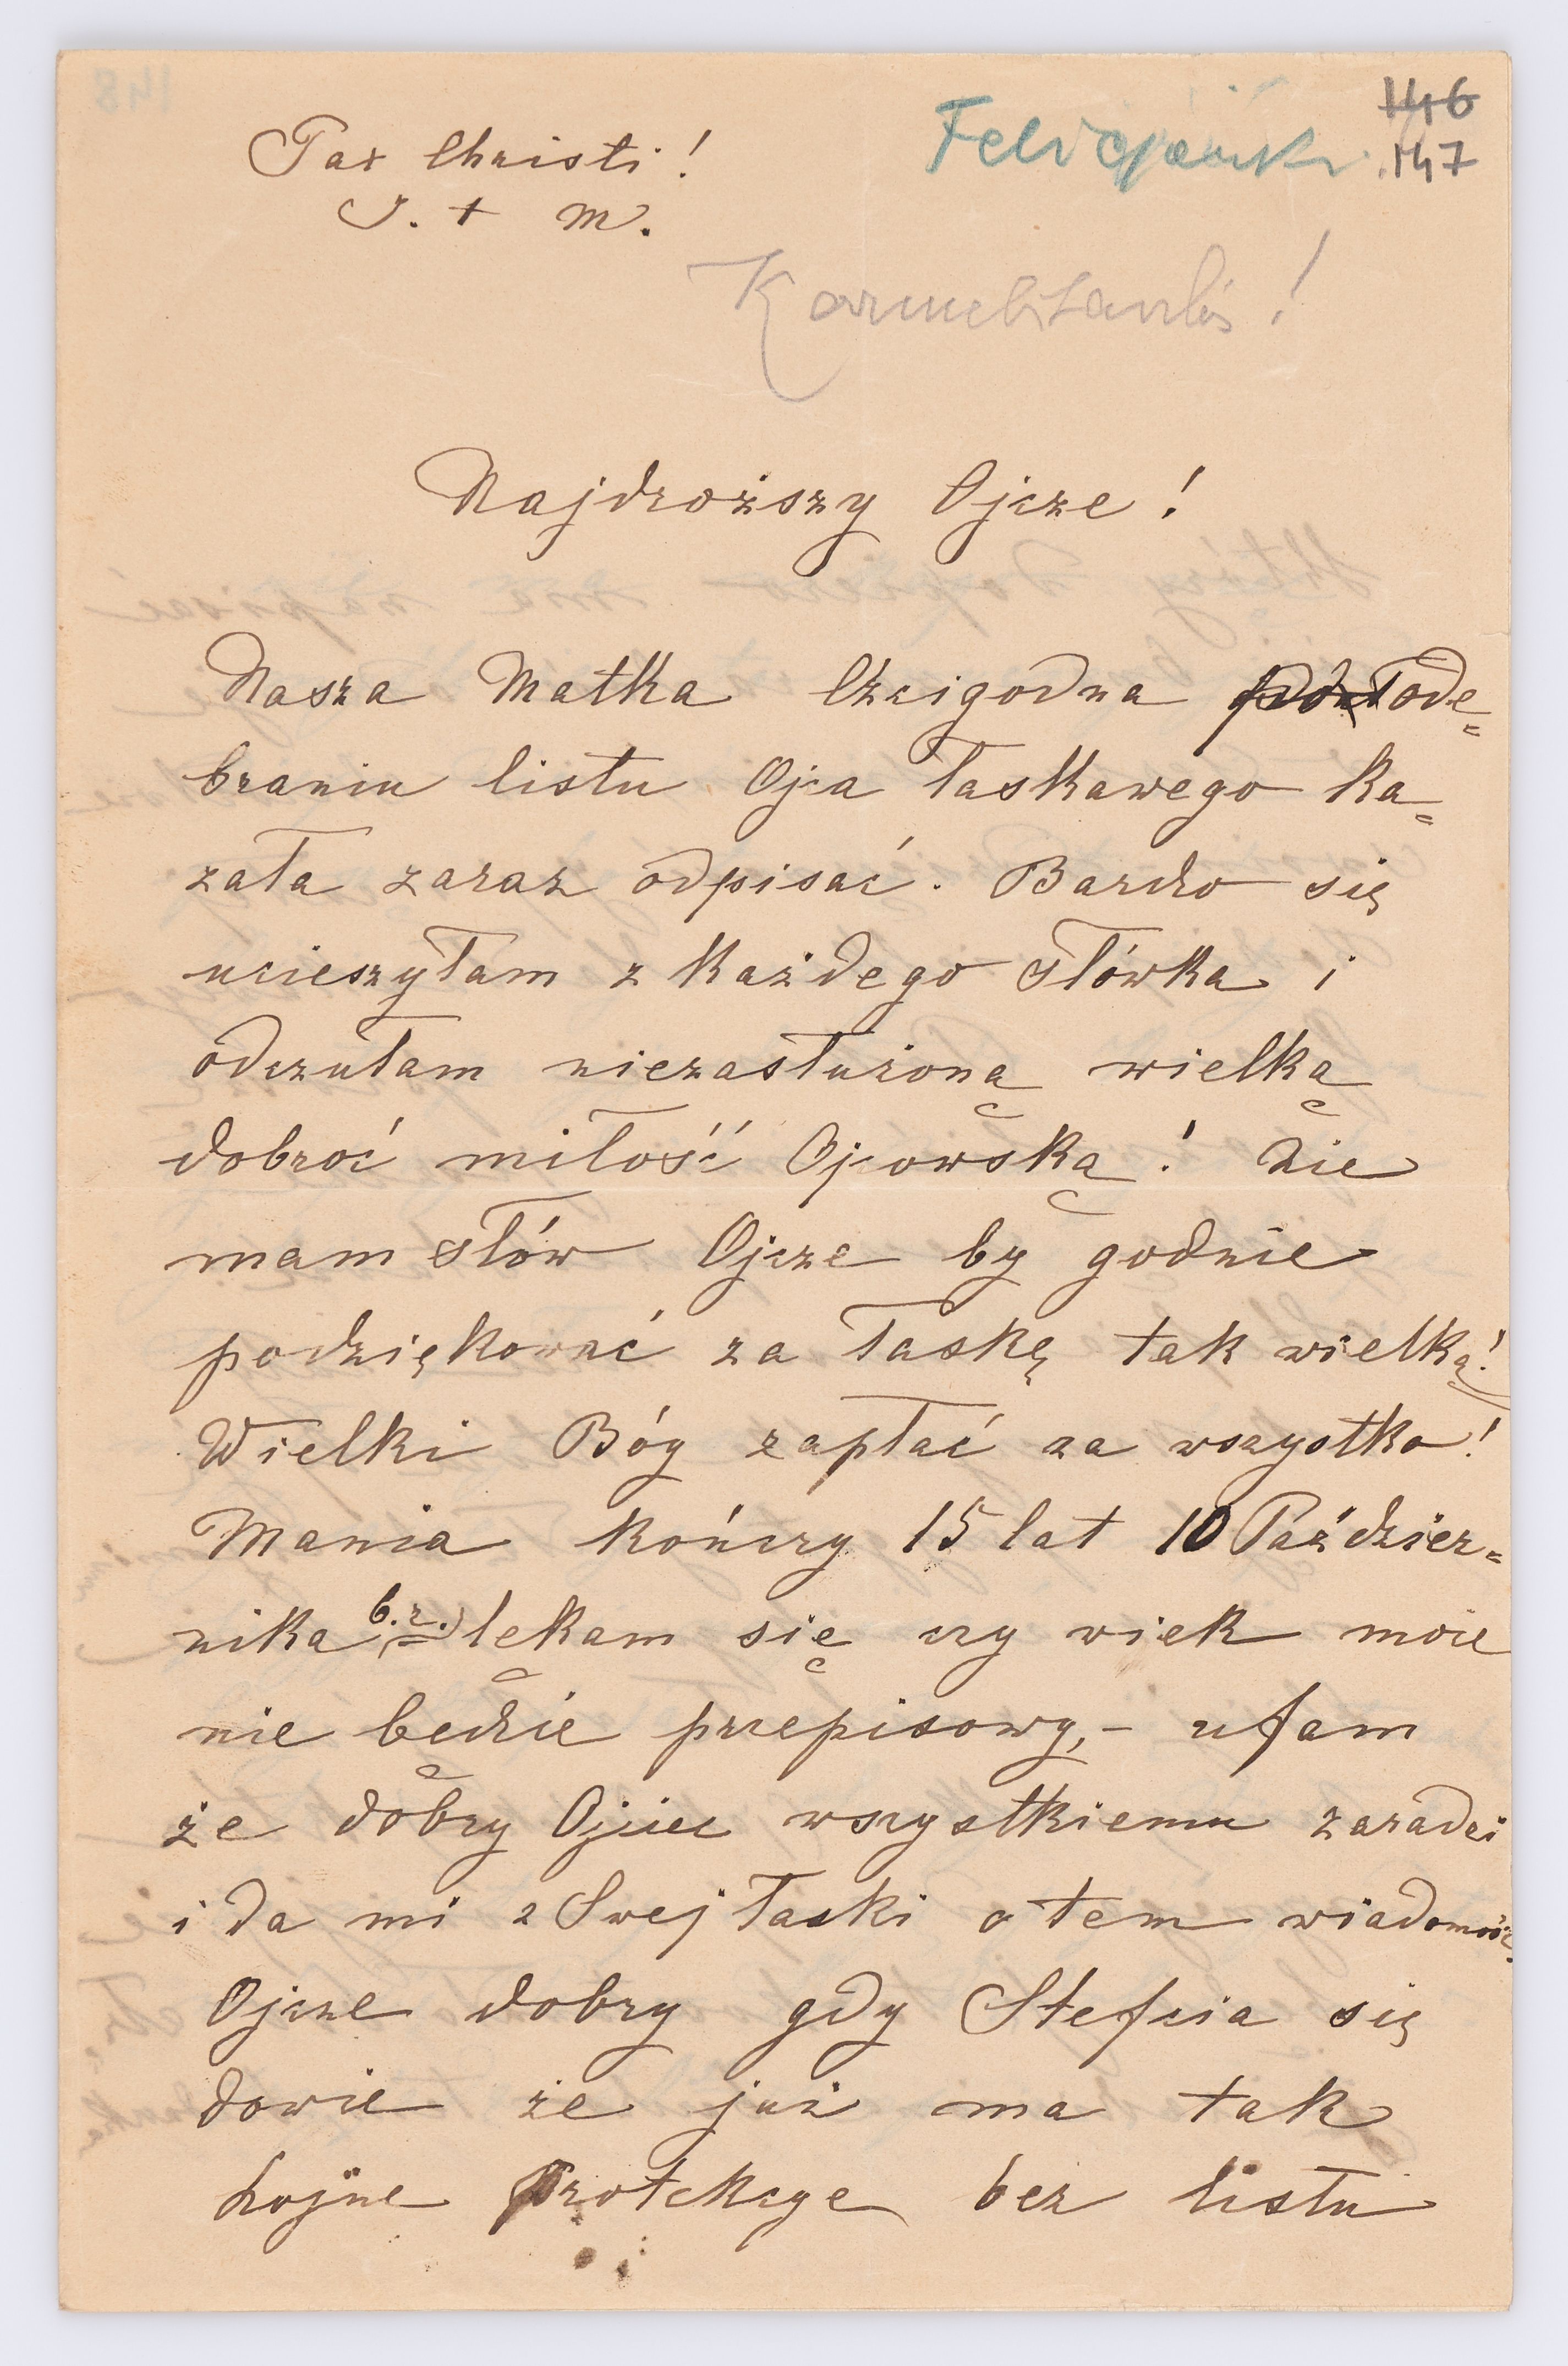 Pax Christi!
J. + M.
Felicjanki
146
147
Karmelitanki!
Najdroższy Ojcze!
Nasza Matka Czcigodna po ode=
braniu listu Ojca Łaskawego ka=
zała zaraz odpisać. Bardzo się
ucieszyłam z każdego słówka i
odczułam niezasłużoną wielką
dobroć miłość Ojcowską! Nie
mam słów Ojcze by godnie
podziękować za łaskę tak wielką!
Wielki Bóg zapłać za wszystko!
Mania kończy 15 lat 10 Paździer=
nika b.r. lękam się czy wiek może
nie będzie przepisowy, – ufam
że dobry Ojciec wszystkiemu zaradzi
i da mi z Swej łaski o tem wiadomość.
Ojcze dobry gdy Stefcia się
dowie że już ma tak
hojne Protekcye bez listu